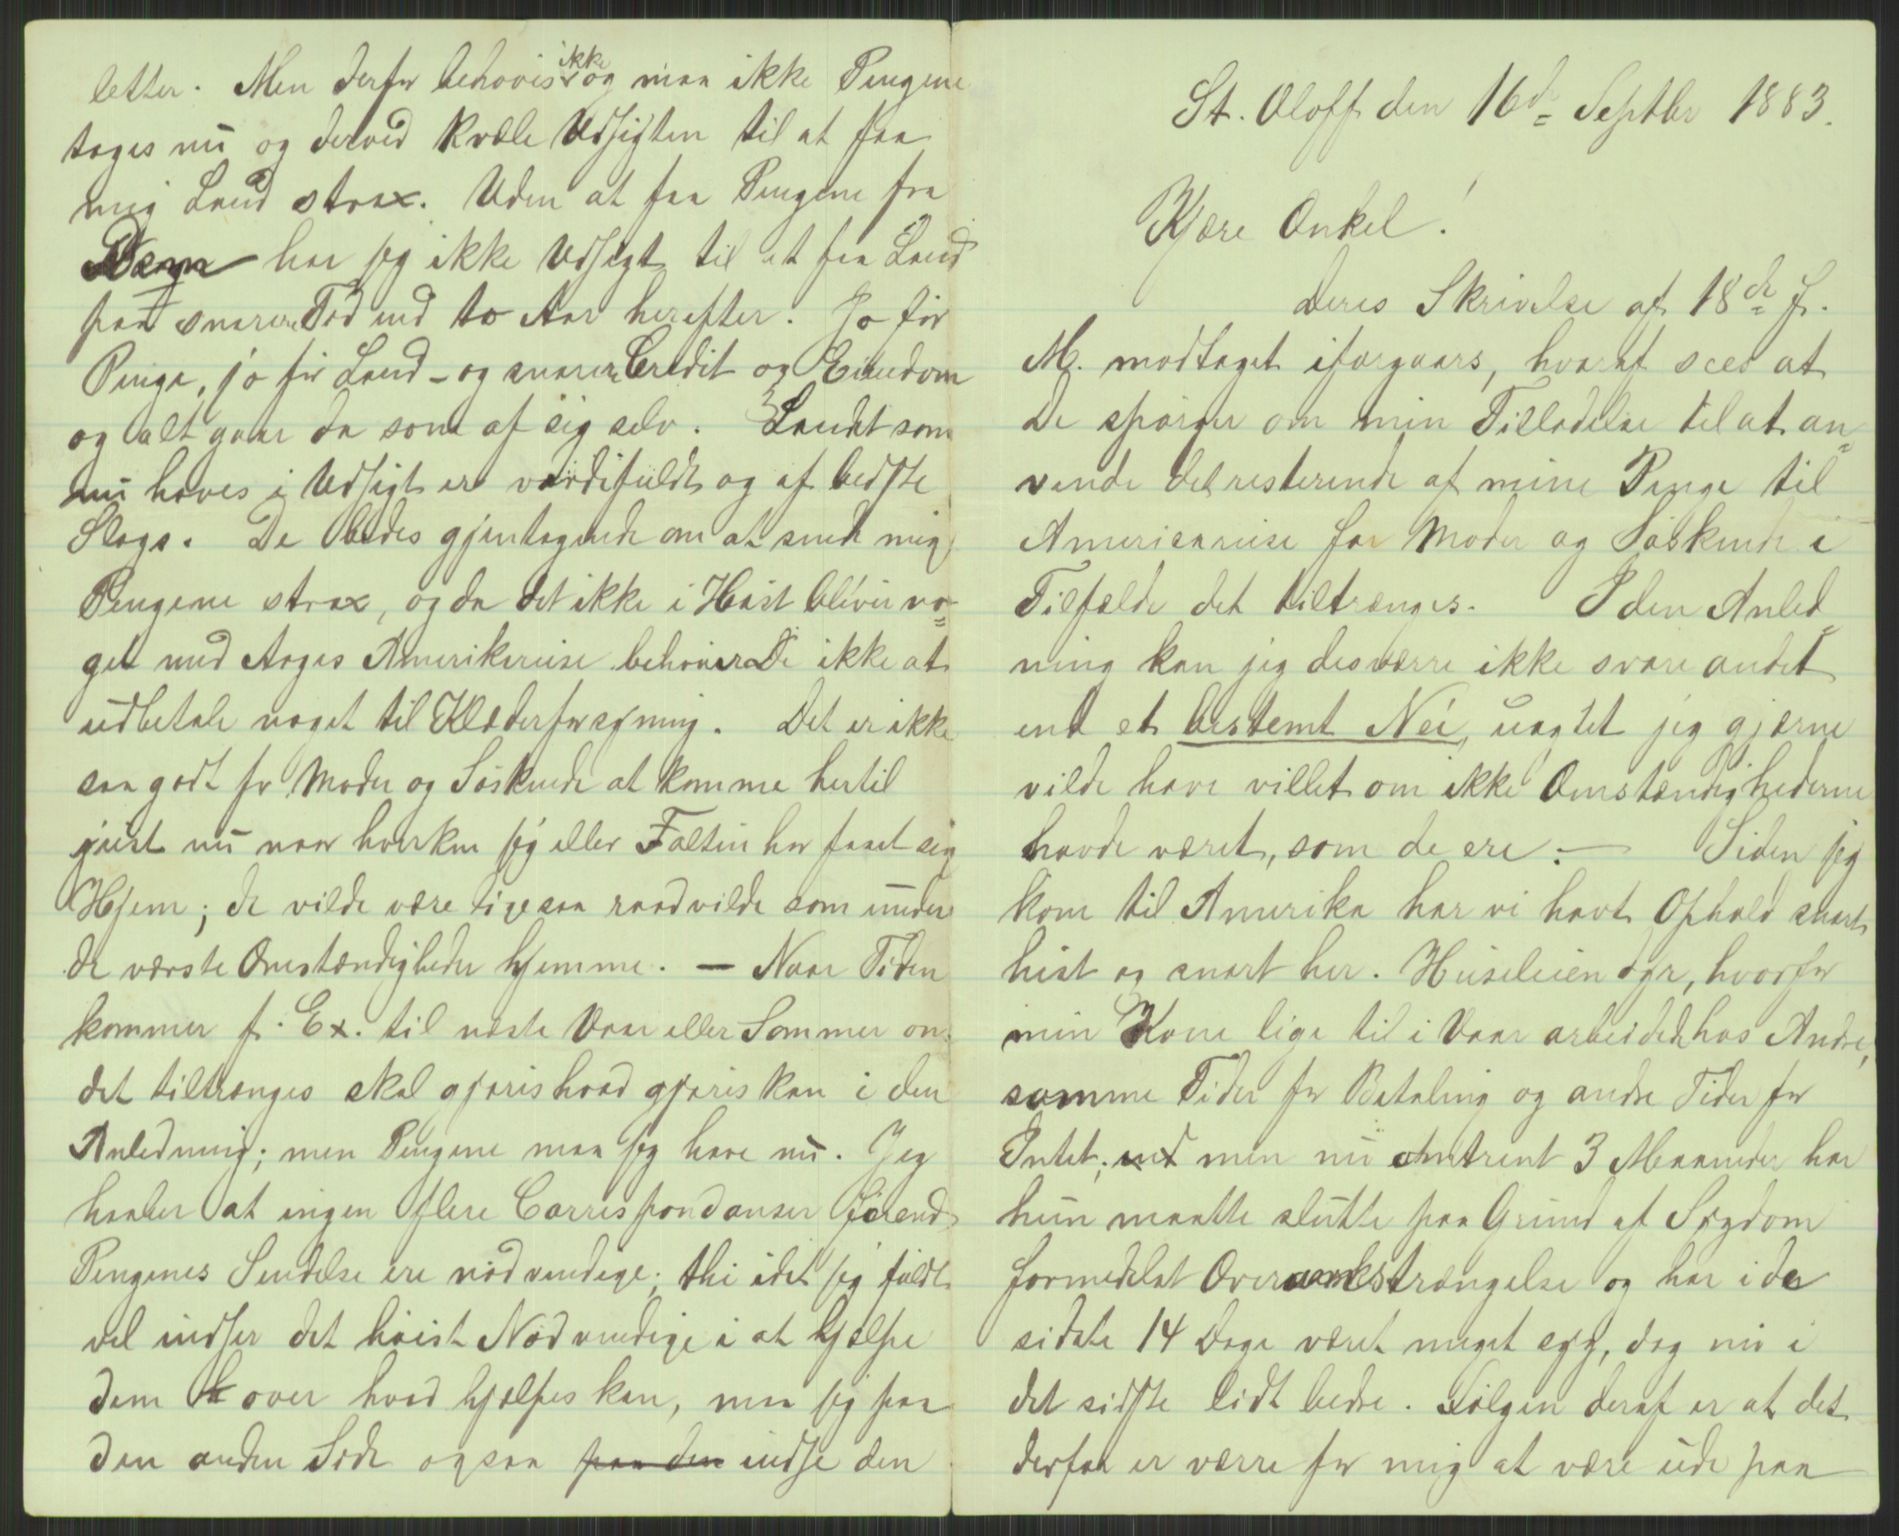 letter. Men derfor behoves ikke og maa ikke Pengene
tages nu og derved kvæle Udsigten til at faa
mig Land strax. Uden at faa Pengene fra
har jeg ikke Udsigt til at faa Land
paa snarere Tid end to Aar herefter. Jo før
Penge, jo før Land - og snarere Credit og Eiendom
og alt gaar da som af sig selv. Landet som
nu haves i Udsigt er værdifuldt og af bedste
Slags. De bedes gjentagende om at sende mig
Pengene strax, og da det ikke i Høst bliver no=
get med Aages Amerikareise behøver De ikke at
udbetale noget til Klæderforsyning. Det er ikke
saa godt for Moder og Søskende at komme hertil
just nu naar hverken jeg eller Faltin har faaet sig
Hjem; de vilde være ligesaa raadvilde som under
de værste Omstændigheder hjemme. — Naar Tiden
kommer f. Ex. til næste Vaar eller Sommer om
det tiltrænges skal gjøres hvad gjøres kan i den
Anledning; men Pengene maa jeg have nu. Jeg
haaber at ingen flere Correspondanser førend
Pengenes Sendelse ere nødvendige; thi idet jeg fuldt
vel indser det høist Nødvendige i at hjælpe
dem over hvad hjælpes kan, maa jeg paa
den anden Side ogsaa paa den indse den
St. Oloff den 16de Septbr 1883.
Kjære Onkel!
Deres Skrivelse af 18de f.
M. modtaget iforgaars, hvoraf sees at
De spørger om min Tilladelse til at an=
vende det resterende af mine Penge til
Americareise for Moder og Søskende i
Tilfælde det tiltrænges. I den Anled=
ning kan jeg desværre ikke svare andet
end et bestemt Nei, uagtet jeg gjærne
vilde have villet om ikke Omstændighederne
havde været, som de ere. — Siden jeg
kom til Amerika har vi havt Ophold snart
hist og snart her. Huseleien dyr, hvorfor
min Kone lige til i Vaar arbeidede hos Andre,
somme Tider for Betaling og andre Tider for
Intet; men nu omtrent 3 Maaneder har
hun maatte slutte paa Grund af Sygdom
formedelst Overanstrængelse og har i de
sidste 14 Dage været meget syg, dog nu i
det sidste lidt bedre. Følgen deraf er at det
derfor er værre for mig at være ude paa